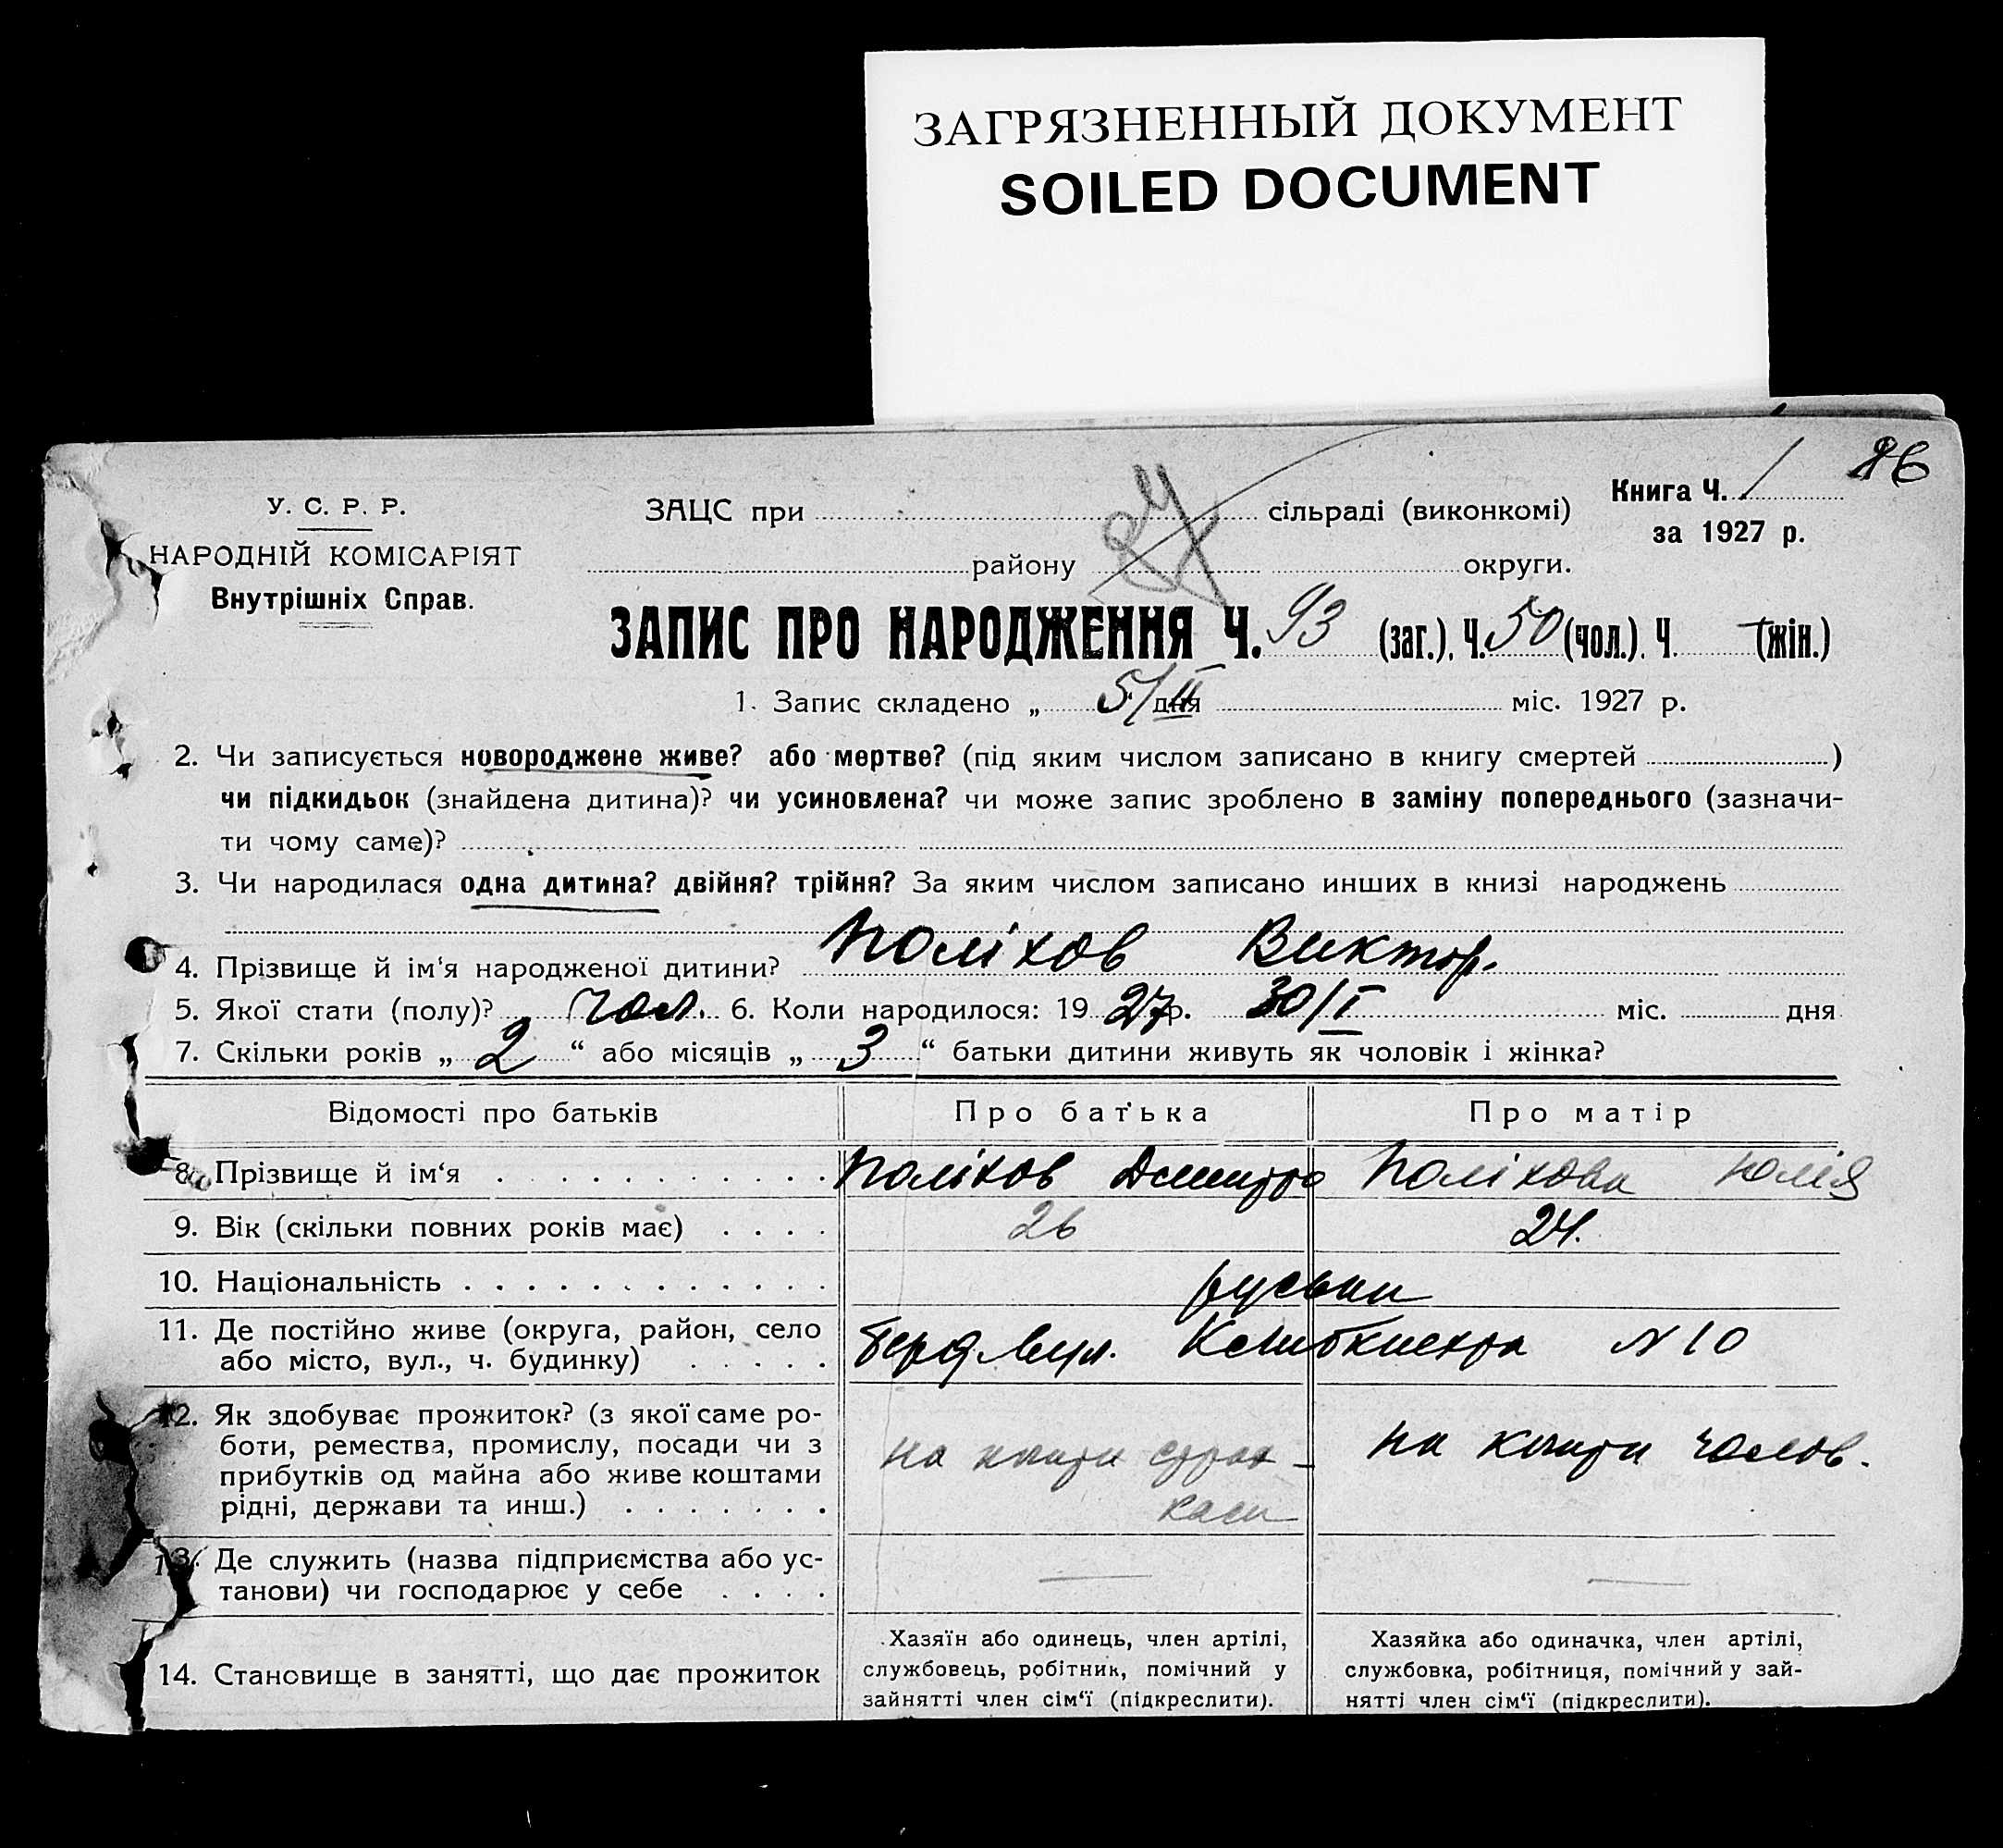 ЗАГРЯЗНЕННЫЙ ДОКУМЕНТ
SOILED DOCUMENT
86
Книга Ч. 1
за 1927 р.
У. С. Р. Р.
НАРОДНІЙ КОМІСАРІЯТ
Внутрішніх Справ.
ЗАЦС при сільраді (виконкомі)
району округи.
ЗАПИС ПРО НАРОДЖЕННЯ Ч. 93 (заг.). Ч. 50 (чол.). Ч. — (жін.)
1. Запис складено „ 5/II “ дня міс. 1927 р.
2. Чи записується новороджене живе? або мертве? (під яким числом записано в книгу смертей )
чи підкидьок (знайдена дитина)? чи усиновлена? чи може запис зроблено в заміну попереднього (зазначи-
ти чому саме)?
3. Чи народилася одна дитина? двійня? трійня? За яким числом записано инших в книзі народжень
4. Прізвище й ім‘я народженої дитини? Поліхов Виктор.
5. Якої стати (полу)? чол. 6. Коли народилося: 1927 р. 30/I міс. дня
7. Скільки років „ 2 “ або місяців „ 3 “ батьки дитини живуть як чоловік і жінка?
Відомості про батьків Про батька Про матір
8. Прізвище й ім‘я Поліхов Дмитро Поліхова Юлія
9. Вік (скільки повних років має) 26 24.
10. Національність руськи
11. Де постійно живе (округа, район, село
або місто, вул., ч. будинку) N 10
12. Як здобуває прожиток? (з якої саме ро-
боти, ремества, промислу, посади чи з
прибутків од майна або живе коштами
рідні, держави та инш.)
на кошти страх-
каси
на кошти чолов.
13. Де служить (назва підприємства або ус-
танови) чи господарює у себе — —
14. Становище в занятті, що дає прожиток
Хазяїн або одинець, член артілі,
службовець, робітник, помічний у
зайнятті член сім‘ї (підкреслити).
Хазяйка або одиначка, член артілі,
службовка, робітниця, помічний у зай-
нятті член сім‘ї (підкреслити).